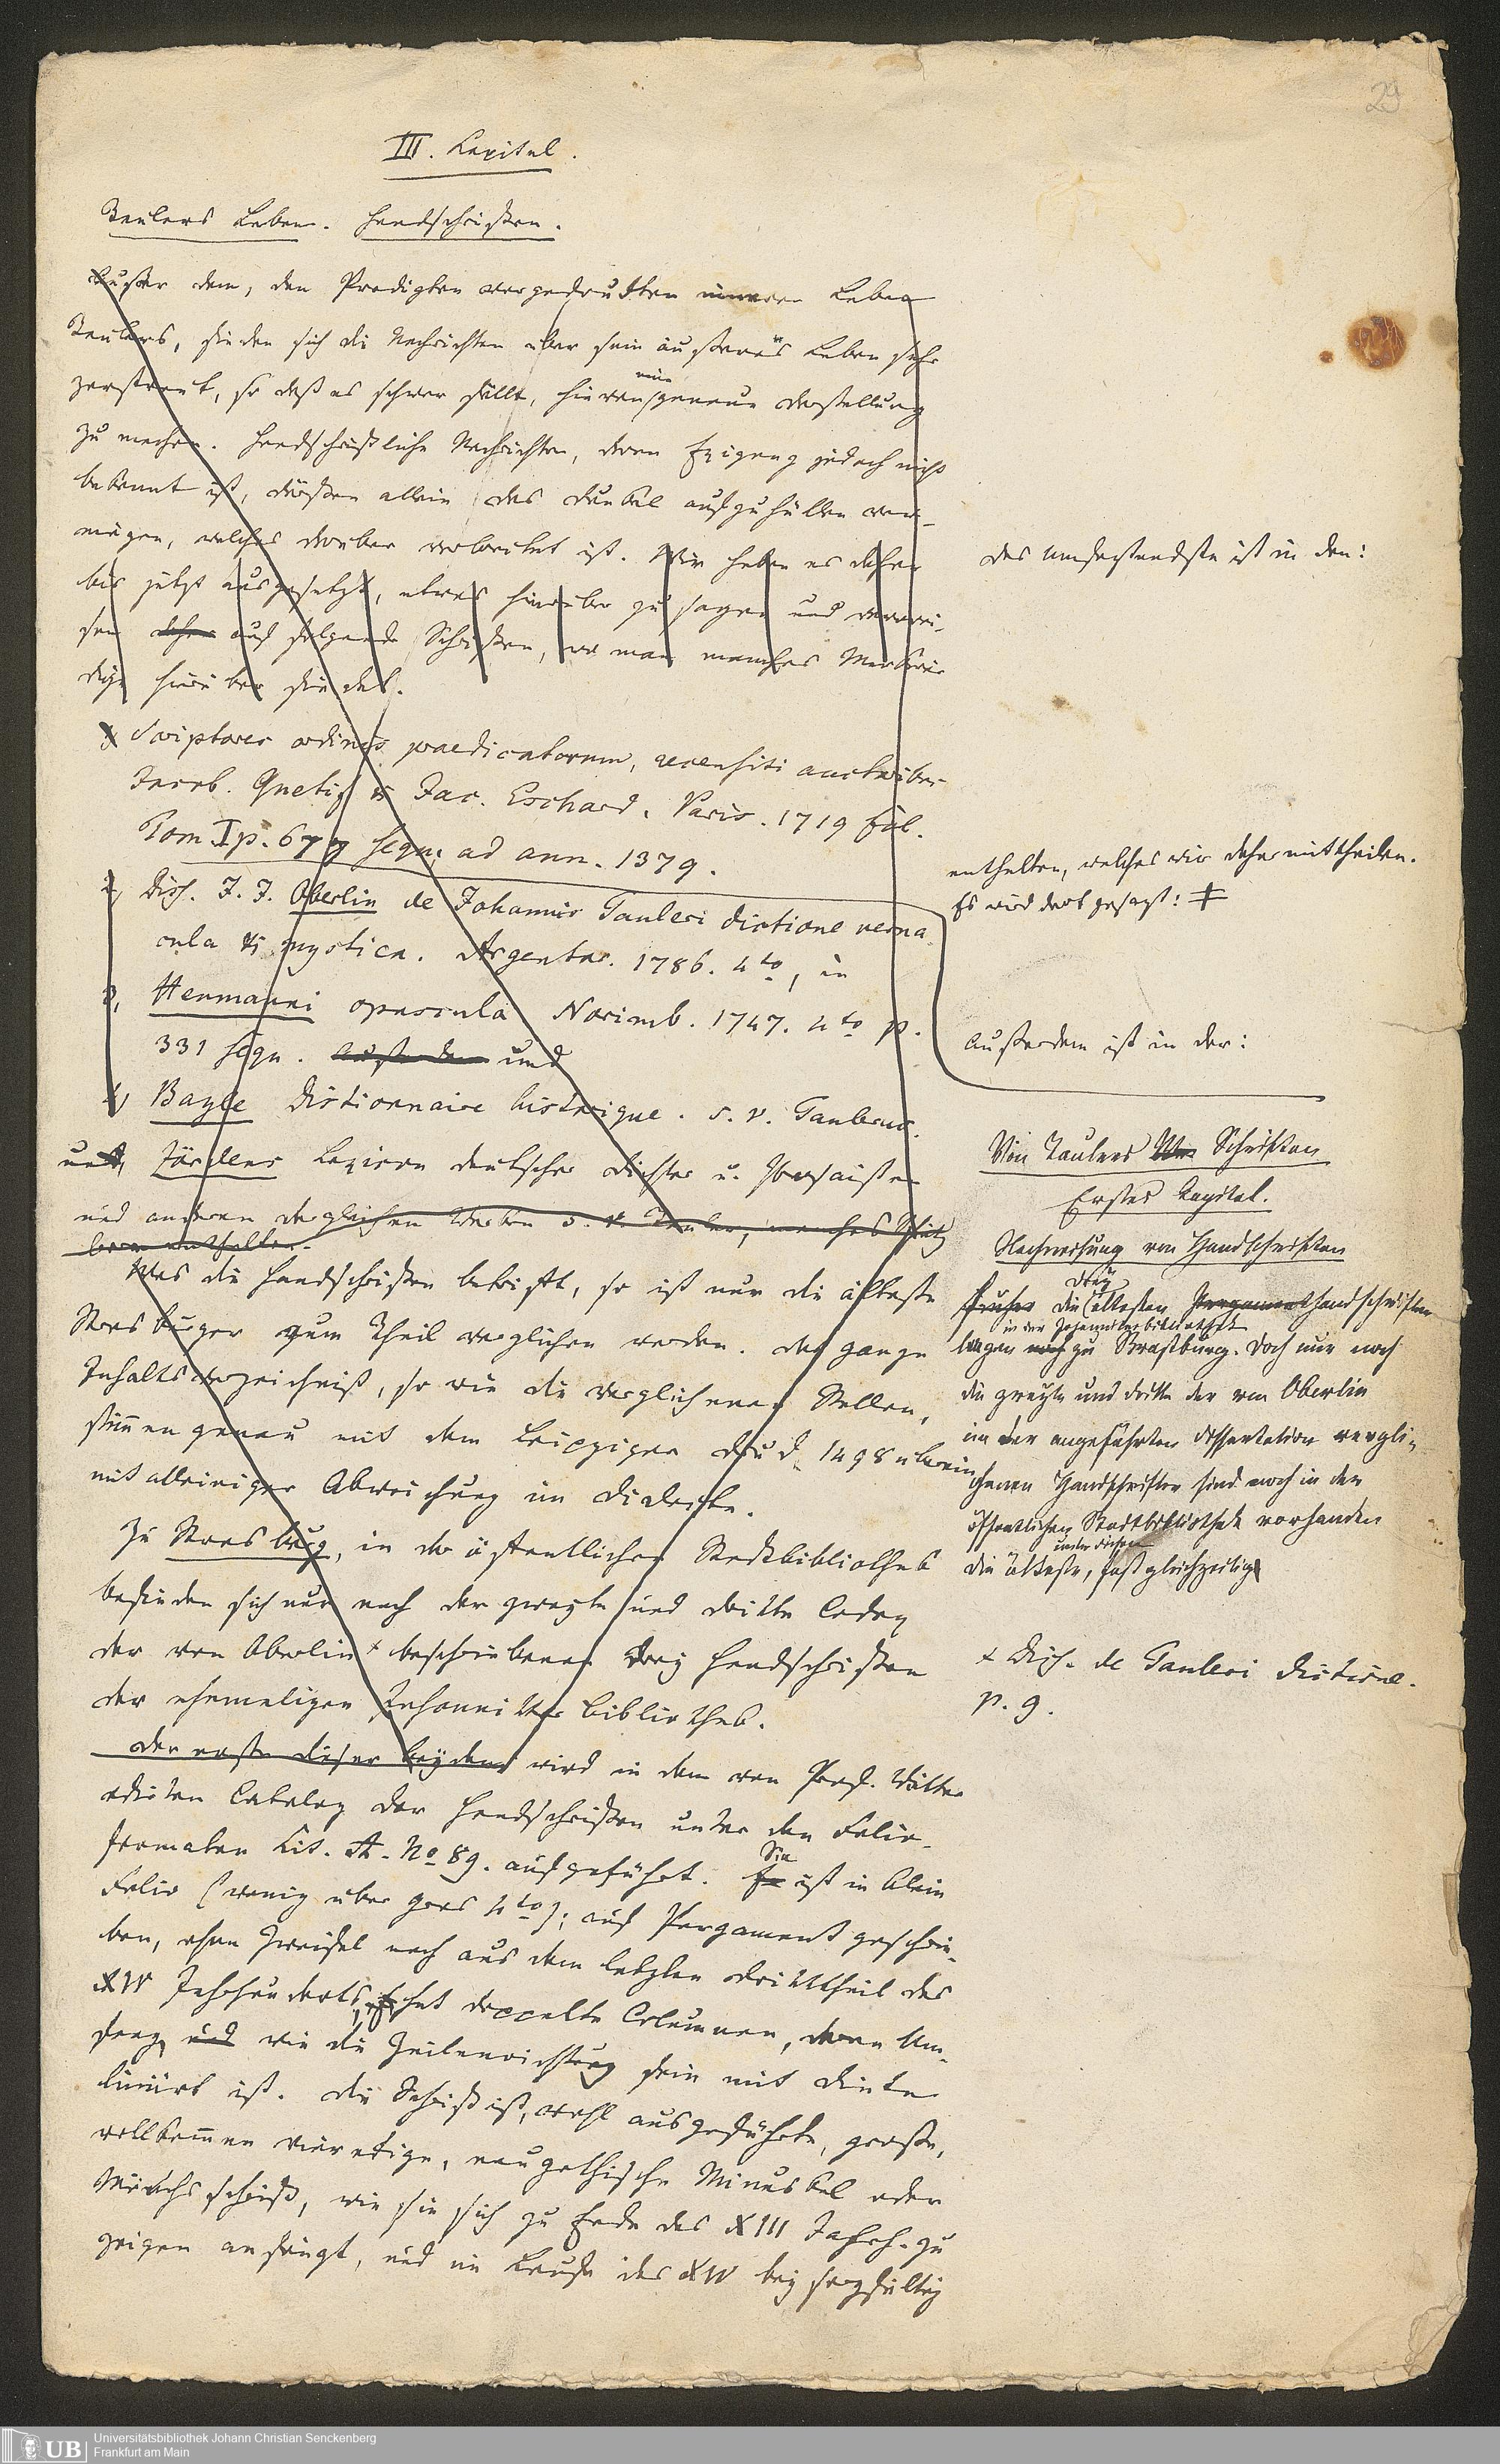 29
III. Kapitel.
Taulers Leben. Handschriften.
Außer dem, den Predigten vorgedruckten inneren Leben
Taulers, finden sich die Nachrichten über sein äußeres Leben sehr
zerstreut, so daß es schwer fällt, hieraus eine genaue Darstellung
zu machen. Handschriftliche Nachrichten, deren jedoch nicht
bekannt ist, dürften allein das Dunkel aufzuhüllen ver-
mögen, welches darüber verbreitet ist. Wir haben es daher
bis jetzt ausgesetzt, etwas hierüber zu sagen und verwei-
sen daher auf folgende Schriften, wo man manches Merkwür-
dige hierüber findet.
Scriptores ordinis praedicatorum, recensiti auctoribus
Jacob. Quetif & Jac. Eschard. Paris. 1719 fol.
Tom. I p. 677 seqn. ad ann. 1379.
2, Diss. J. J. Oberlin de Johannis Tauleri dictione verna-
cula & mystica. Argentor. 1786. 4to, in
3, Heumanni opuscula Norimb. 1747. 4to p.
331 seqn. Außerdem und
4, Bayle Dictionnaire historique. s. v. Taulerus.
und, Jördens Lexicon deutscher Dichter u. Prosaisten
und anderen dergleichen Werken s. v. Tauler, manches
enthalten.
Was die Handschriften betrifft, so ist nur die älteste
Strasburger zum Theil verglichen worden. Das ganze
Inhaltsverzeichniß, so wie die verglichenen Stellen,
stimmen genau mit dem Leipziger Druck 1498 überein,
mit alleiniger Abweichung im Dialecte.
Zu Strasburg, in der öffentlichen Stadtbibliothek
befinden sich nur noch der zweyte und dritte Codex
der von Oberlin + beschriebenen drey Handschriften
der ehemaligen Johanniter Bibliothek.
Der erste dieser beyden wird in dem von Prof. Witter
edirten Catalog der Handschriften unter den Folio-
formaten Lit. A. No 89. aufgeführt. Er Sie ist in klein
Folio (wenig über gros 4to); auf Pergament geschrie-
ben, ohne Zweifel noch aus dem letzten Drittheil des
XIV Jahrhunderts, hat doppelte Columnen, deren Um-
fang und wie die Zeilenrichtung fein mit Dinte
liniirt ist. Die Schrift ist, wohl ausgeführte, große,
vollkommen viereckige, neugothische Minuskel oder
Mönchsschrift, wie sie sich zu Ende des XIII Jahrh. zu
zeigen anfängt, und im Laufe des XIV bey sorgfältig
Das Umfassendste ist in den:
enthalten, welches wir daher mittheilen.
Es wird dort gesagt: ǂ
Außerdem ist in der:
Von Taulers Schriften
Erstes Kapitel.
Nachweisung von Handschriften
Früher die drey ältesten Pergamenthandschriften
in der Johanniterbibliothek
lagen noch zu Straßburg. Doch nur noch
die zweyte und dritte der von Oberlin
in der angeführten Dissertation vergli-
chenen Handschriften sind noch in der
öffentlichen Stadtbibliothek vorhanden
unter diesen
die älteste, fast gleichzeitige
+ Diss. de Tauleri dictione.
p. 9.
UB Universitätsbibliothek Johann Christian Senckenberg
Frankfurt am Main